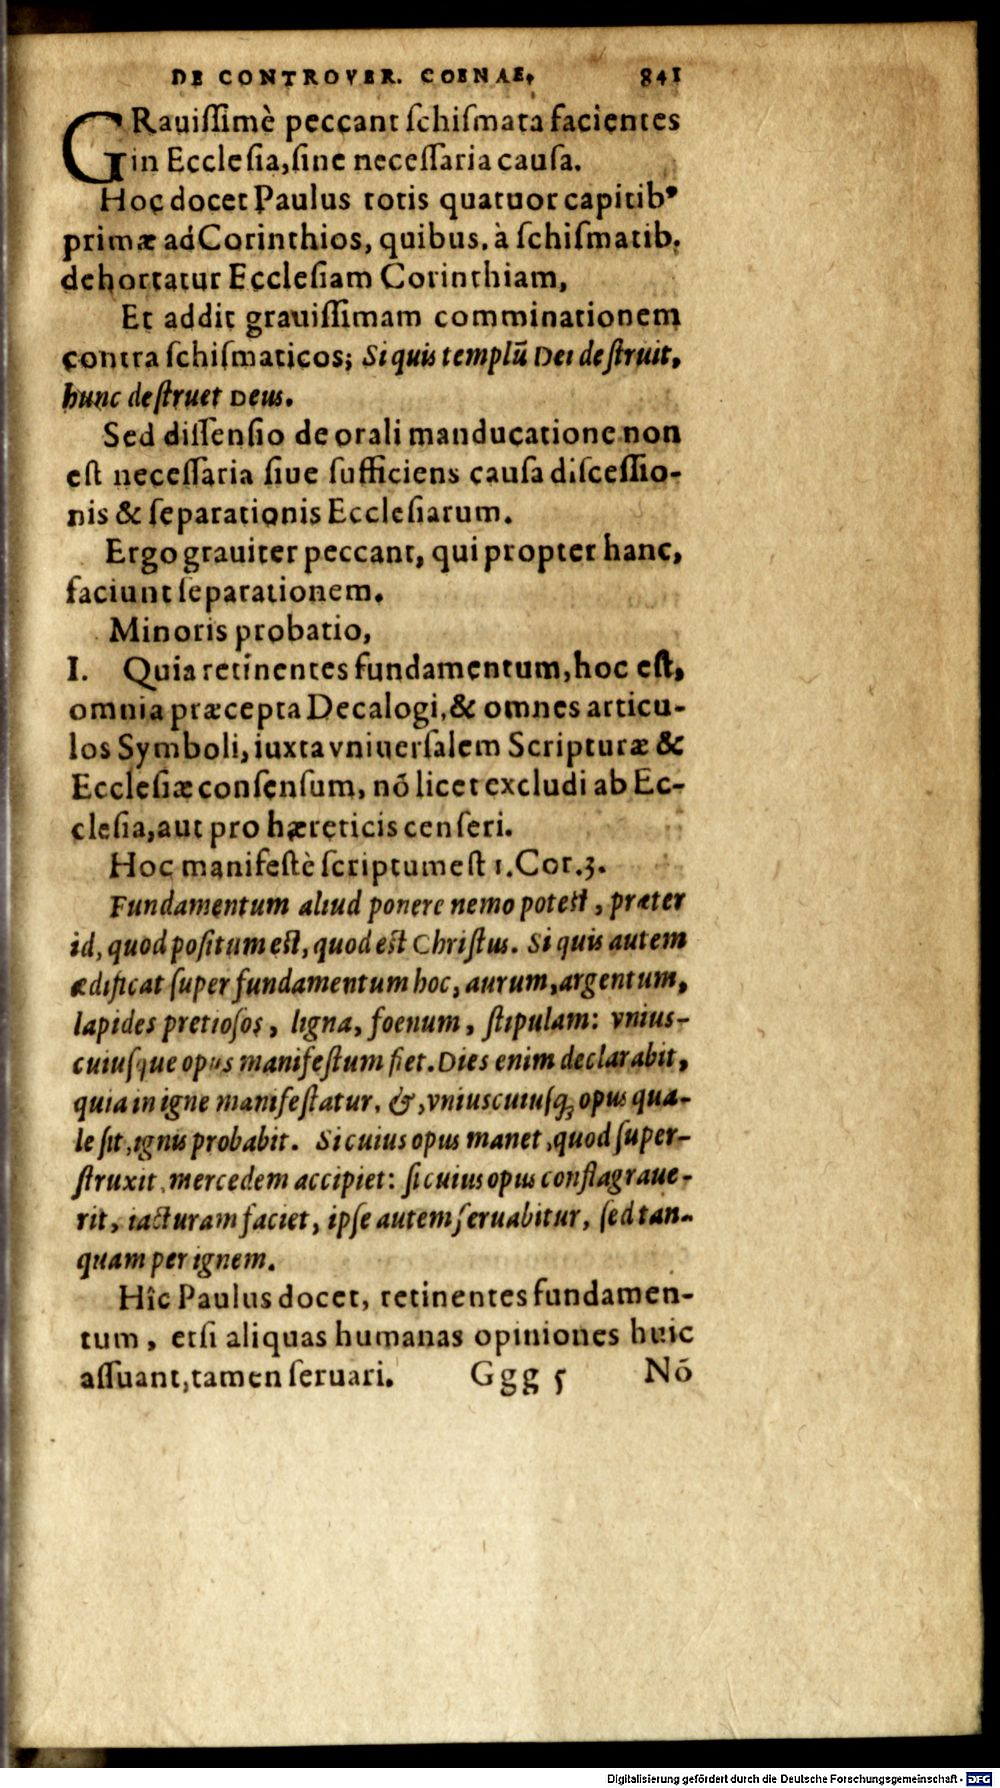 DE CONTROVER. COENAE. 841
GRauiſſimè peccant ſchiſmata facientes
in Eccleſia, ſine neceſſaria cauſa.
Hoc docet Paulus totis quatuor capitibꝰ
primæ ad Corinthios, quibus, à ſchiſmatib.
dehortatur Eccleſiam Corinthiam,
Et addit grauiſſimam comminationem
contra ſchiſmaticos; Si quis templũ Dei deſtruit,
hunc deſtruet Deus.
Sed diſſenſio de orali manducatione non
eſt neceſſaria ſiue ſufficiens cauſa diſceſſio-
nis & ſeparationis Eccleſiarum.
Ergo grauiter peccant, qui propter hanc,
faciunt ſeparationem.
Minoris probatio,
I. Quia retinentes fundamentum, hoc eſt,
omnia præcepta Decalogi, & omnes articu-
los Symboli, iuxta vniuerſalem Scripturæ &
Eccleſiæ conſenſum, nõ licet excludi ab Ec-
cleſia, aut pro hæreticis cenſeri.
Hoc manifeſtè ſcriptum eſt 1. Cor. 3.
Fundamentum aliud ponere nemo poteſt, præter
id, quod poſitum eſt, quod eſt Chriſtus. Si quis autem
ædificat ſuper fundamentum hoc, aurum, argentum,
lapides pretioſos, ligna, foenum, ſtipulam: vnius-
cuiuſque opus manifeſtum fiet. Dies enim declarabit,
quia in igne manifeſtatur, &, vniuscuiuſq; opus qua-
le ſit, ignis probabit. Si cuius opus manet, quod ſuper-
ſtruxit, mercedem accipiet: ſi cuius opus conflagraue-
rit, iacturam faciet, ipſe autem ſeruabitur, ſed tan-
quam per ignem.
Hîc Paulus docet, retinentes fundamen-
tum, etſi aliquas humanas opiniones huic
aſſuant, tamen ſeruari. Ggg 5 Nõ
Digitalisierung gefördert durch die Deutsche Forschungsgemeinschaft - DFG